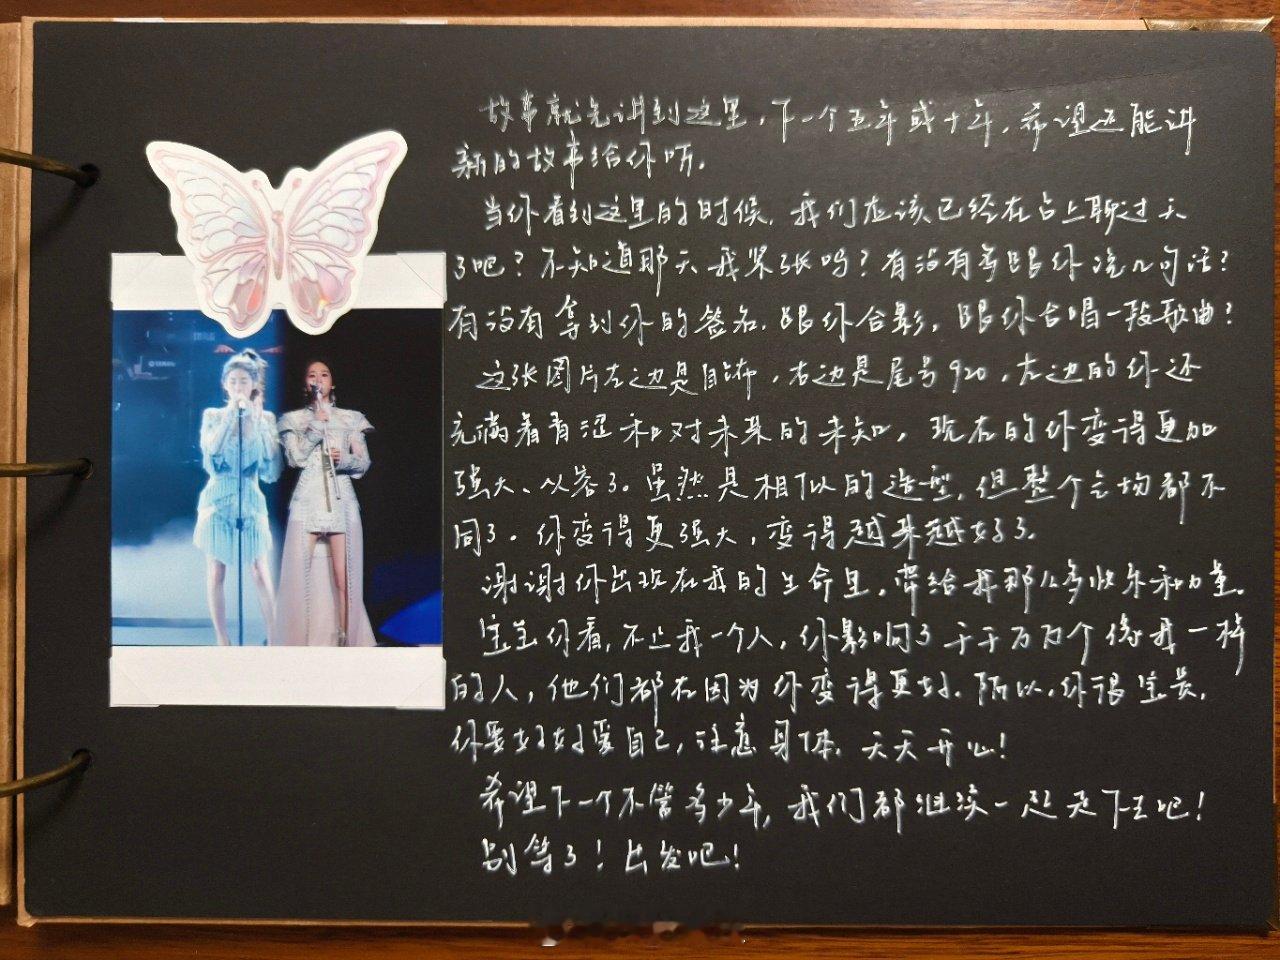 故事就先讲到这里，下一个五年或十年，希望还能讲
新的故事给你听。
当你看到这里的时候，我们应该已经在台上聊过天
了吧？不知道那天我紧张吗？有没有多跟你说几句话？
有没有拿到你的签名，跟你合影，跟你合唱一段歌曲？
这张图片左边是首饰，右边是尾号920，左边的你还
充满着青涩和对未来的未知，现在的你变得更加
强大、从容了。虽然是相似的造型，但整个气场都不
同了。你变得更强大，变得越来越好了。
谢谢你出现在我的生命里，带给我那么多快乐和力量。
宝宝你看，不止我一个人，你影响了千千万万个像我一样
的人，他们都在因为你变得更好。所以，你很宝贵，
你要好好爱自己，注意身体，天天开心！
希望下一个不管多少年，我们都继续一起走下去吧！
别等了！出发吧！